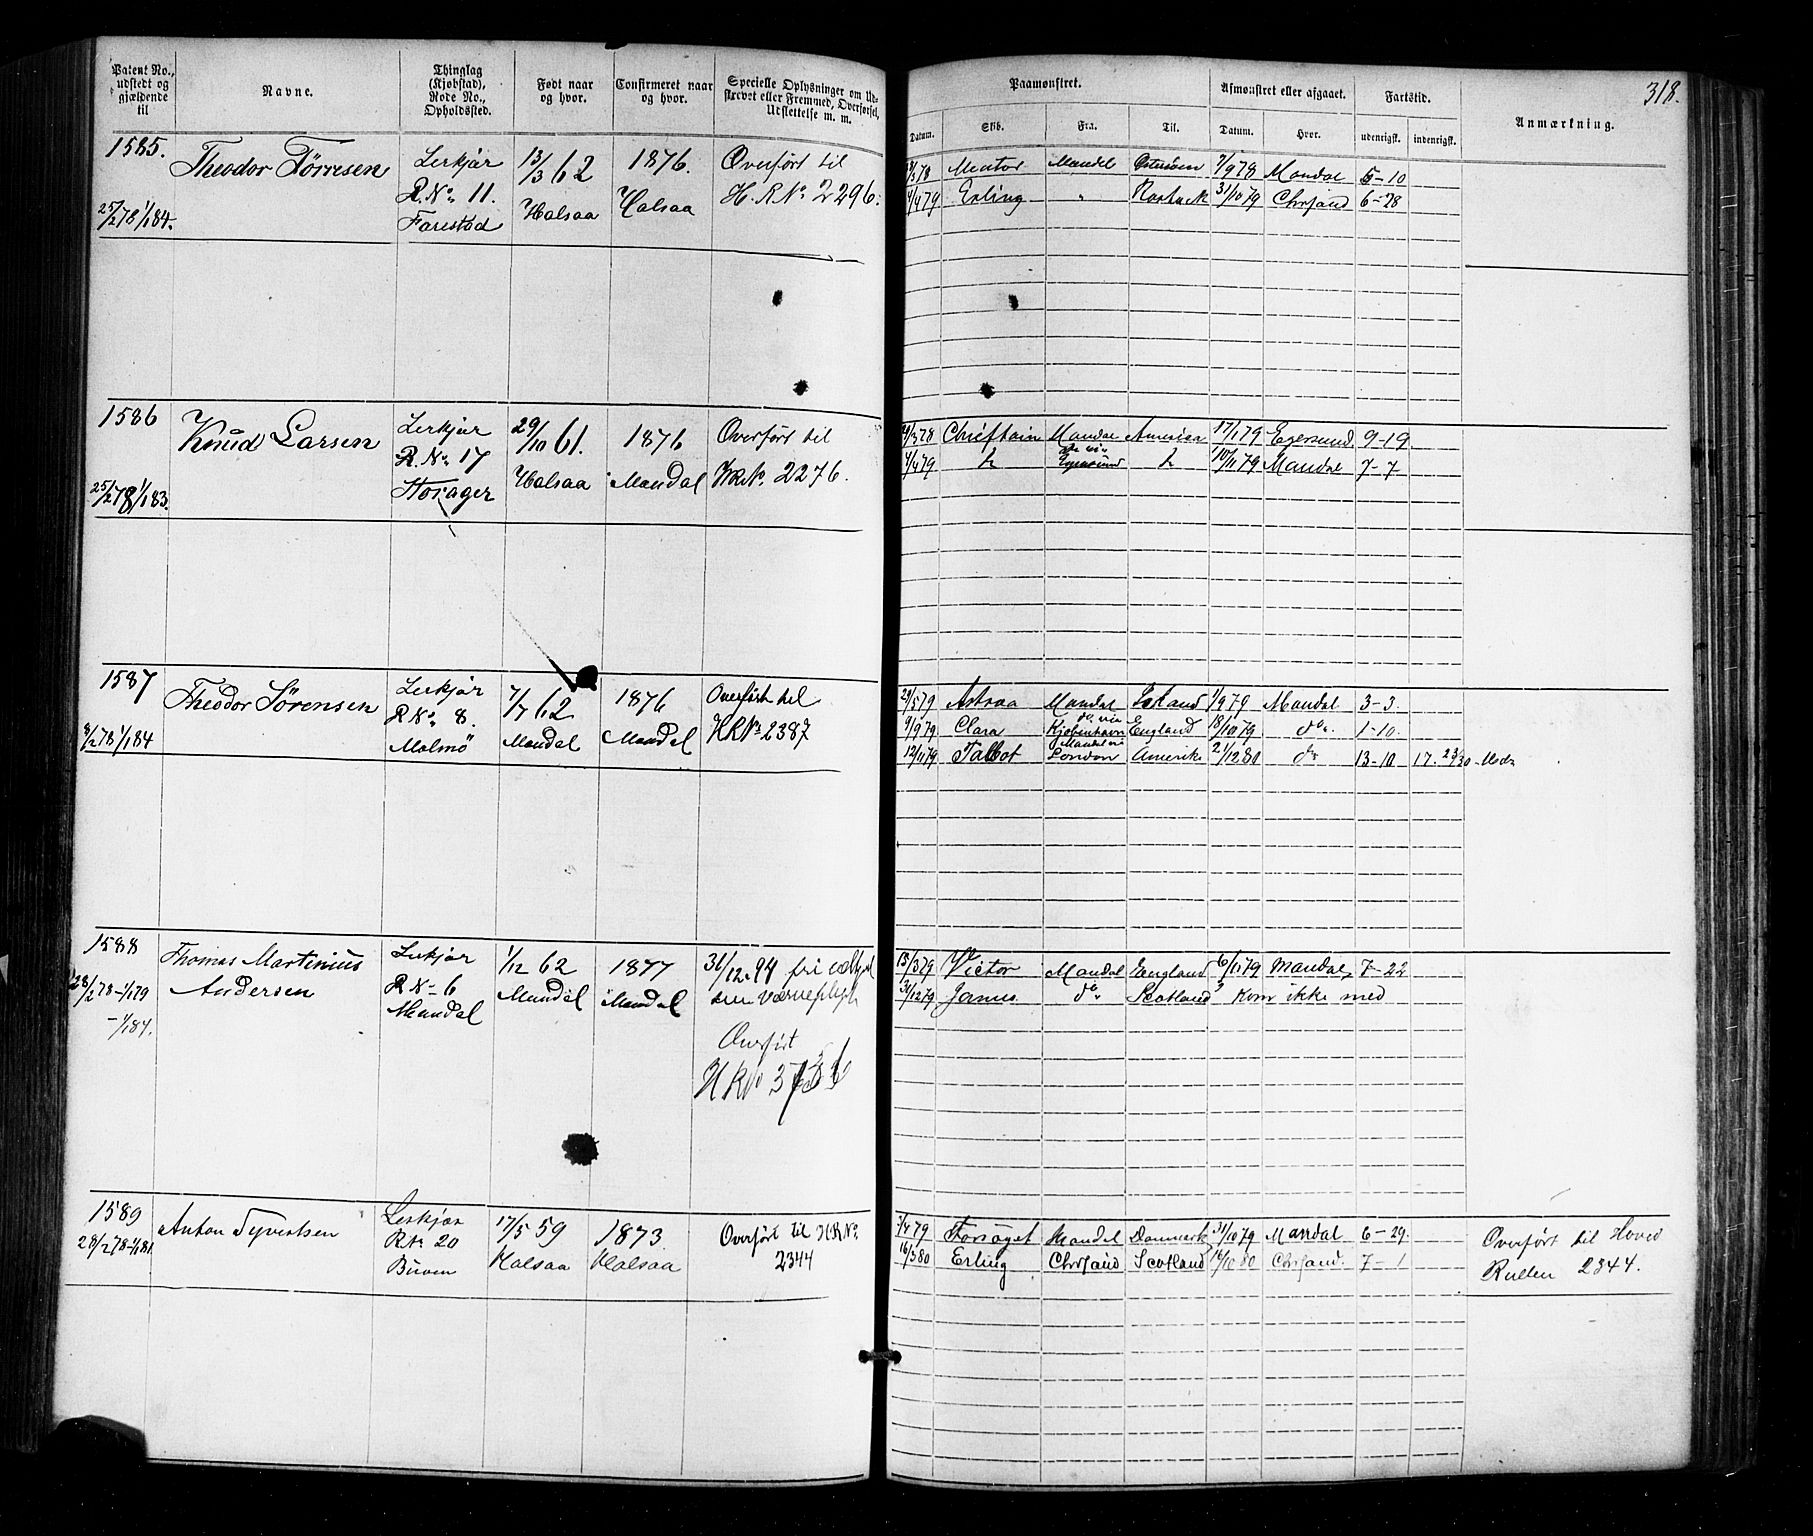 318.
Patent No., udstedt og gjældende til | Navne. | Thinglag (Kjøbstad), Rode No., Opholdssted. | Født naar og hvor. | Confirmeret naar og hvor. | Specielle Oplysninger om Udskrevet eller Fremmed, Overførsel, Udslettelse m. m.
Paamønstret. | Afmønstret eller afgaaet. | Fartstid. | Anmærkning.
Datum. | Skib. | Fra. | Til. | Datum. | Hvor. | udenrigsk. | indenrigsk.
1585. | Theodor Törresen | Leskjær | 13/3 62 | 1876. | Overført til
R No 11. | Halsaa | Halsaa | H. R No 2296.
25/2 78 1/1 84. | Farestad
Mentor | Mandal | 7/9 78 | Mandal | 5-10
4/4 79 | Erling | " | 31/10 79 | Chrsand | 6-28
1586 | Knud Larsen | Leskjær | 29/10 61. | 1876 | Overført til
R. No 17 | Halsaa | Mandal | HR No. 2276.
25/2 78 1/1 83. | Storager
Chieftain | Mandal | America | 17/1 79 | Egersund | 9-19
do via
4/4 79 | Egersund | 10/11 79 | Mandal | 7-7
1587 | Theodor Sörensen | Leskjær | 7/7 62 | 1876 | Overført til
R No 8. | Mandal | Mandal | HR No 2387
8/2 78 1/1 84 | Malmö
29/5 79 | Astraa | Mandal | Island | 1/9 79 | Mandal | 3-3.
do via
9/9 79 | Clara | Kjöbenhavn | England | 18/10 79 | do. | 1-10.
Mandal via
12/11 79 | Talbot | London | Amerik | 21/12 80 | do | 13-10 | 17. 23/30 Mdr
1588 | Thomas Martinius | Leskjær | 1/12 62 | 1877 | 31/12. 94 fri
28/2 78 - 1/1 79 | Andersen | R No 6 | Mandal | Mandal | værnepligt
- 1/1 84. | Mandal
Overført
H R No
13/3 79 | Victor | Mandal | England | 6/11 79 | Mandal | 7-22
31/12 79 | Janus | do. | Scotland | Kom ikke med
1589 | Anton Syvertsen | Leskjær | 17/5 59 | 1873. | Overført til H R No.
28/2 78-1/1 81. | R No 20 | Halsaa | Halsaa | 2344
Buven
Forsøget | Mandal | Danmark | 31/10 79 | Mandal | 6-29. | Overført til Hoved
16/3 80 | Erling | Chrsand | Scotland | 16/10 80 | Chrsand. | 7-1 | Rullen 2344.